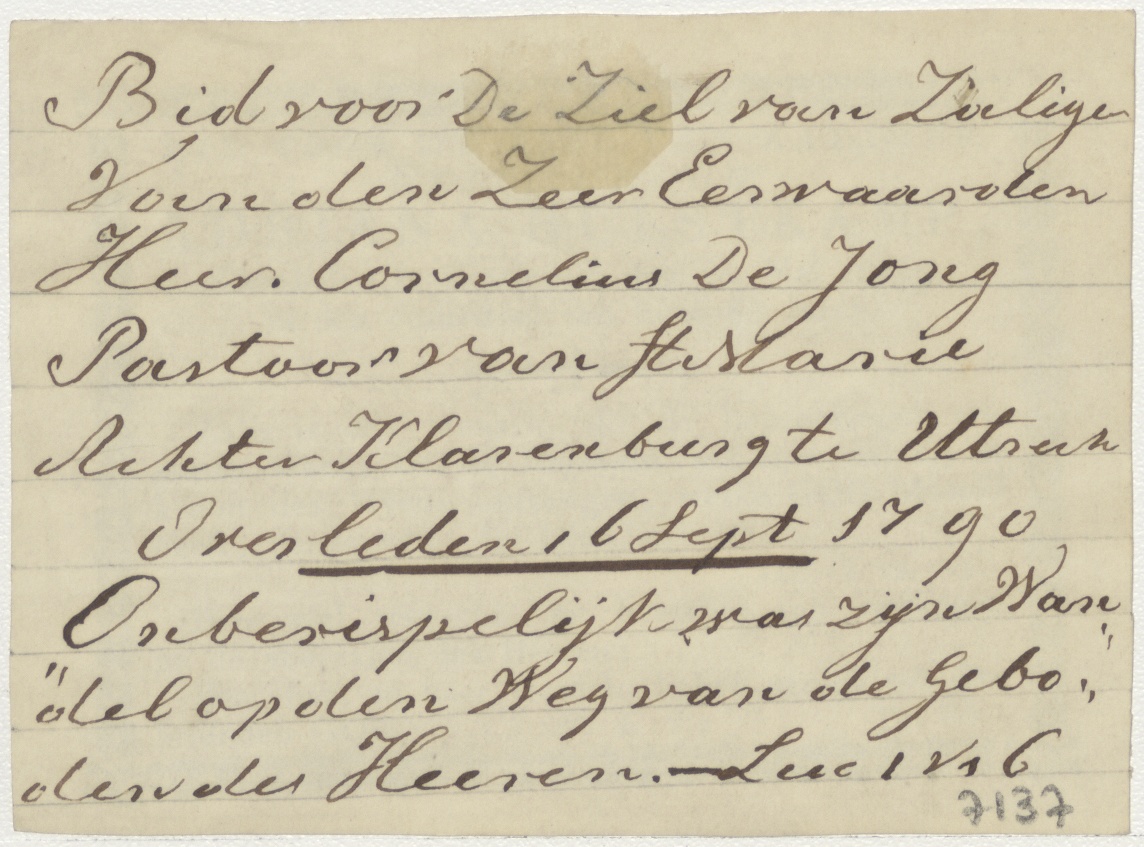 Bid voor De Ziel van Zaliger
Van den Zeer Eerwaarden
Heer. Cornelius De Jong
Pastoor van St Marie
Achter Klarenburg te Utrech
Overleden 16 Sept 1790
Onberispelijk was zijn Wan„
"del op den Weg van de Gebo„
den des Heeren.—Luc 1 vs 6
7137